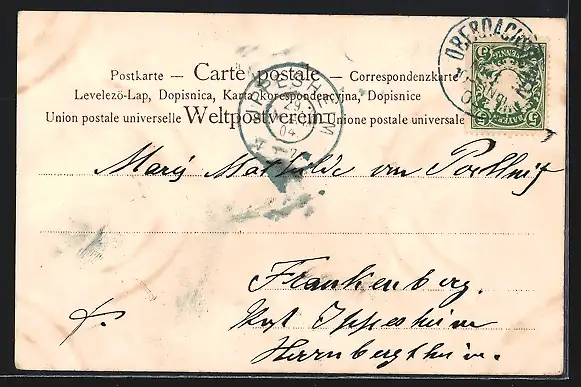 OBERDACHSTETTEN
Postkarte — Carte postale — Correspondenzkarte
Levelezö-Lap, Dopisnica, Karta korespondencyjna, Dopisnice
Union postale universelle Weltpostverein Unione postale universale
IPPESHEIM
29
04
BAYERN
5 5
Mathilde von
Frankenberg.
Post Ippesheim
Herrnbergtheim.